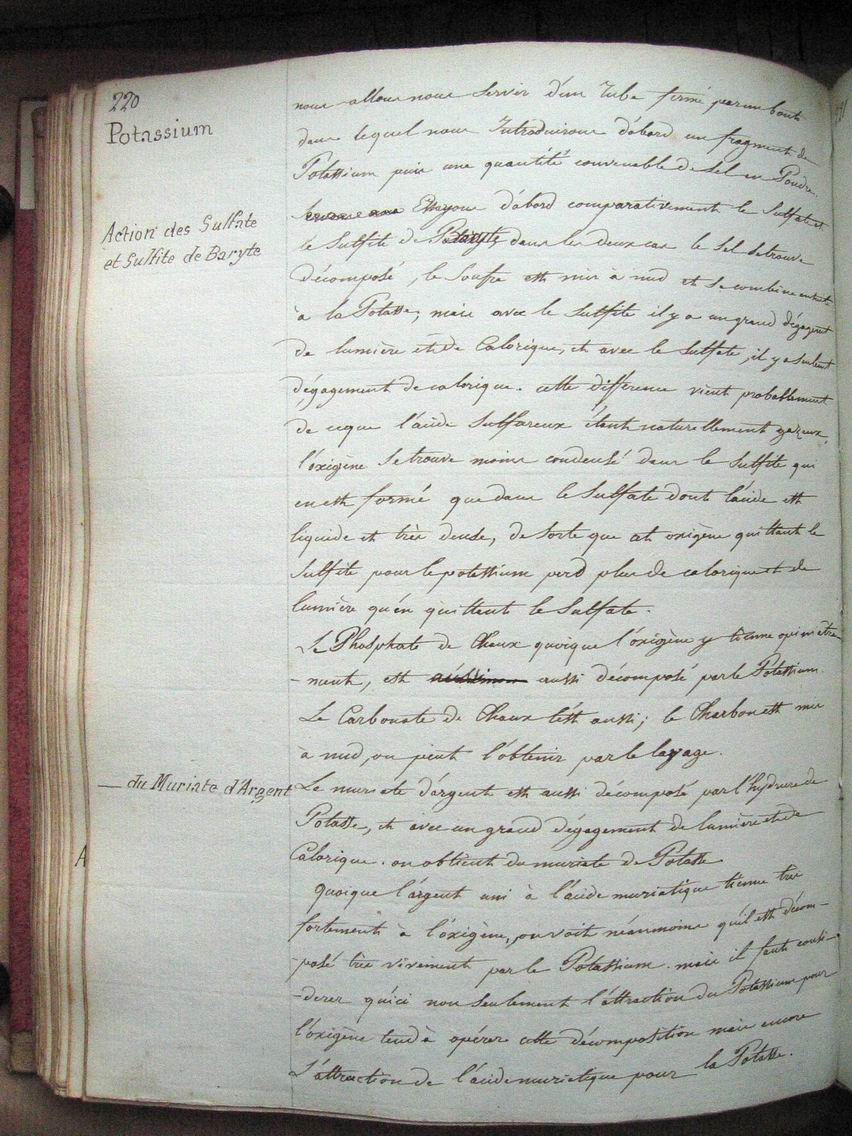 220
Potassium
nous allons nous servir d'un Tube fermé par un bout
dans lequel nous Introduirons d'abord un fragment de
Potassium puis une quantité convenable de Sel en Poudre.
Action des Sulfate
et Sulfite de Baryte
Essayons d'abord comparativement le Sulfate et
le Sulfite de Baryte, dans les deux cas le Sel se trouve
décomposé, le Soufre est mis à nud et se combine ensuite
à la Potasse; mais avec le Sulfite il y a un grand dégagement
de lumière et de Calorique, et avec le Sulfate, il y a seulement
dégagement de calorique. cette différence vient probablement
de ce que l'acide Sulfureux étant naturellement gazeux,
l'oxigène se trouve moins condensé dans le Sulfite qui
en est formé que dans le Sulfate dont l'acide est
liquide et très dense, de sorte que cet oxigène quittant le
Sulfite pour le potassium perd plus de calorique et de
lumière qu'en quittant le Sulfate.
Le Phosphate de Chaux quoique l'oxigène y tienne opiniatre
-ment, est aussi décomposé par le Potassium.
Le Carbonate de Chaux l'est aussi; le Charbon est mis
à nud, on peut l'obtenir par le lavage.
— du Muriate d'Argent
Le muriate d'argent est aussi décomposé par l'hydrure de
Potasse, et avec un grand dégagement de lumière et de
Calorique. on obtient du muriate de Potasse
A
quoique l'argent uni à l'acide muriatique tienne très
fortement à l'oxigène, on voit néanmoins qu'il est décom-
-posé très vivement par le Potassium. mais il faut consi-
-derer qu'ici non seulement l'attraction du Potassium pour
l'oxigène tend à opérer cette décomposition mais encore
L'attraction de l'acide muriatique pour la Potasse.